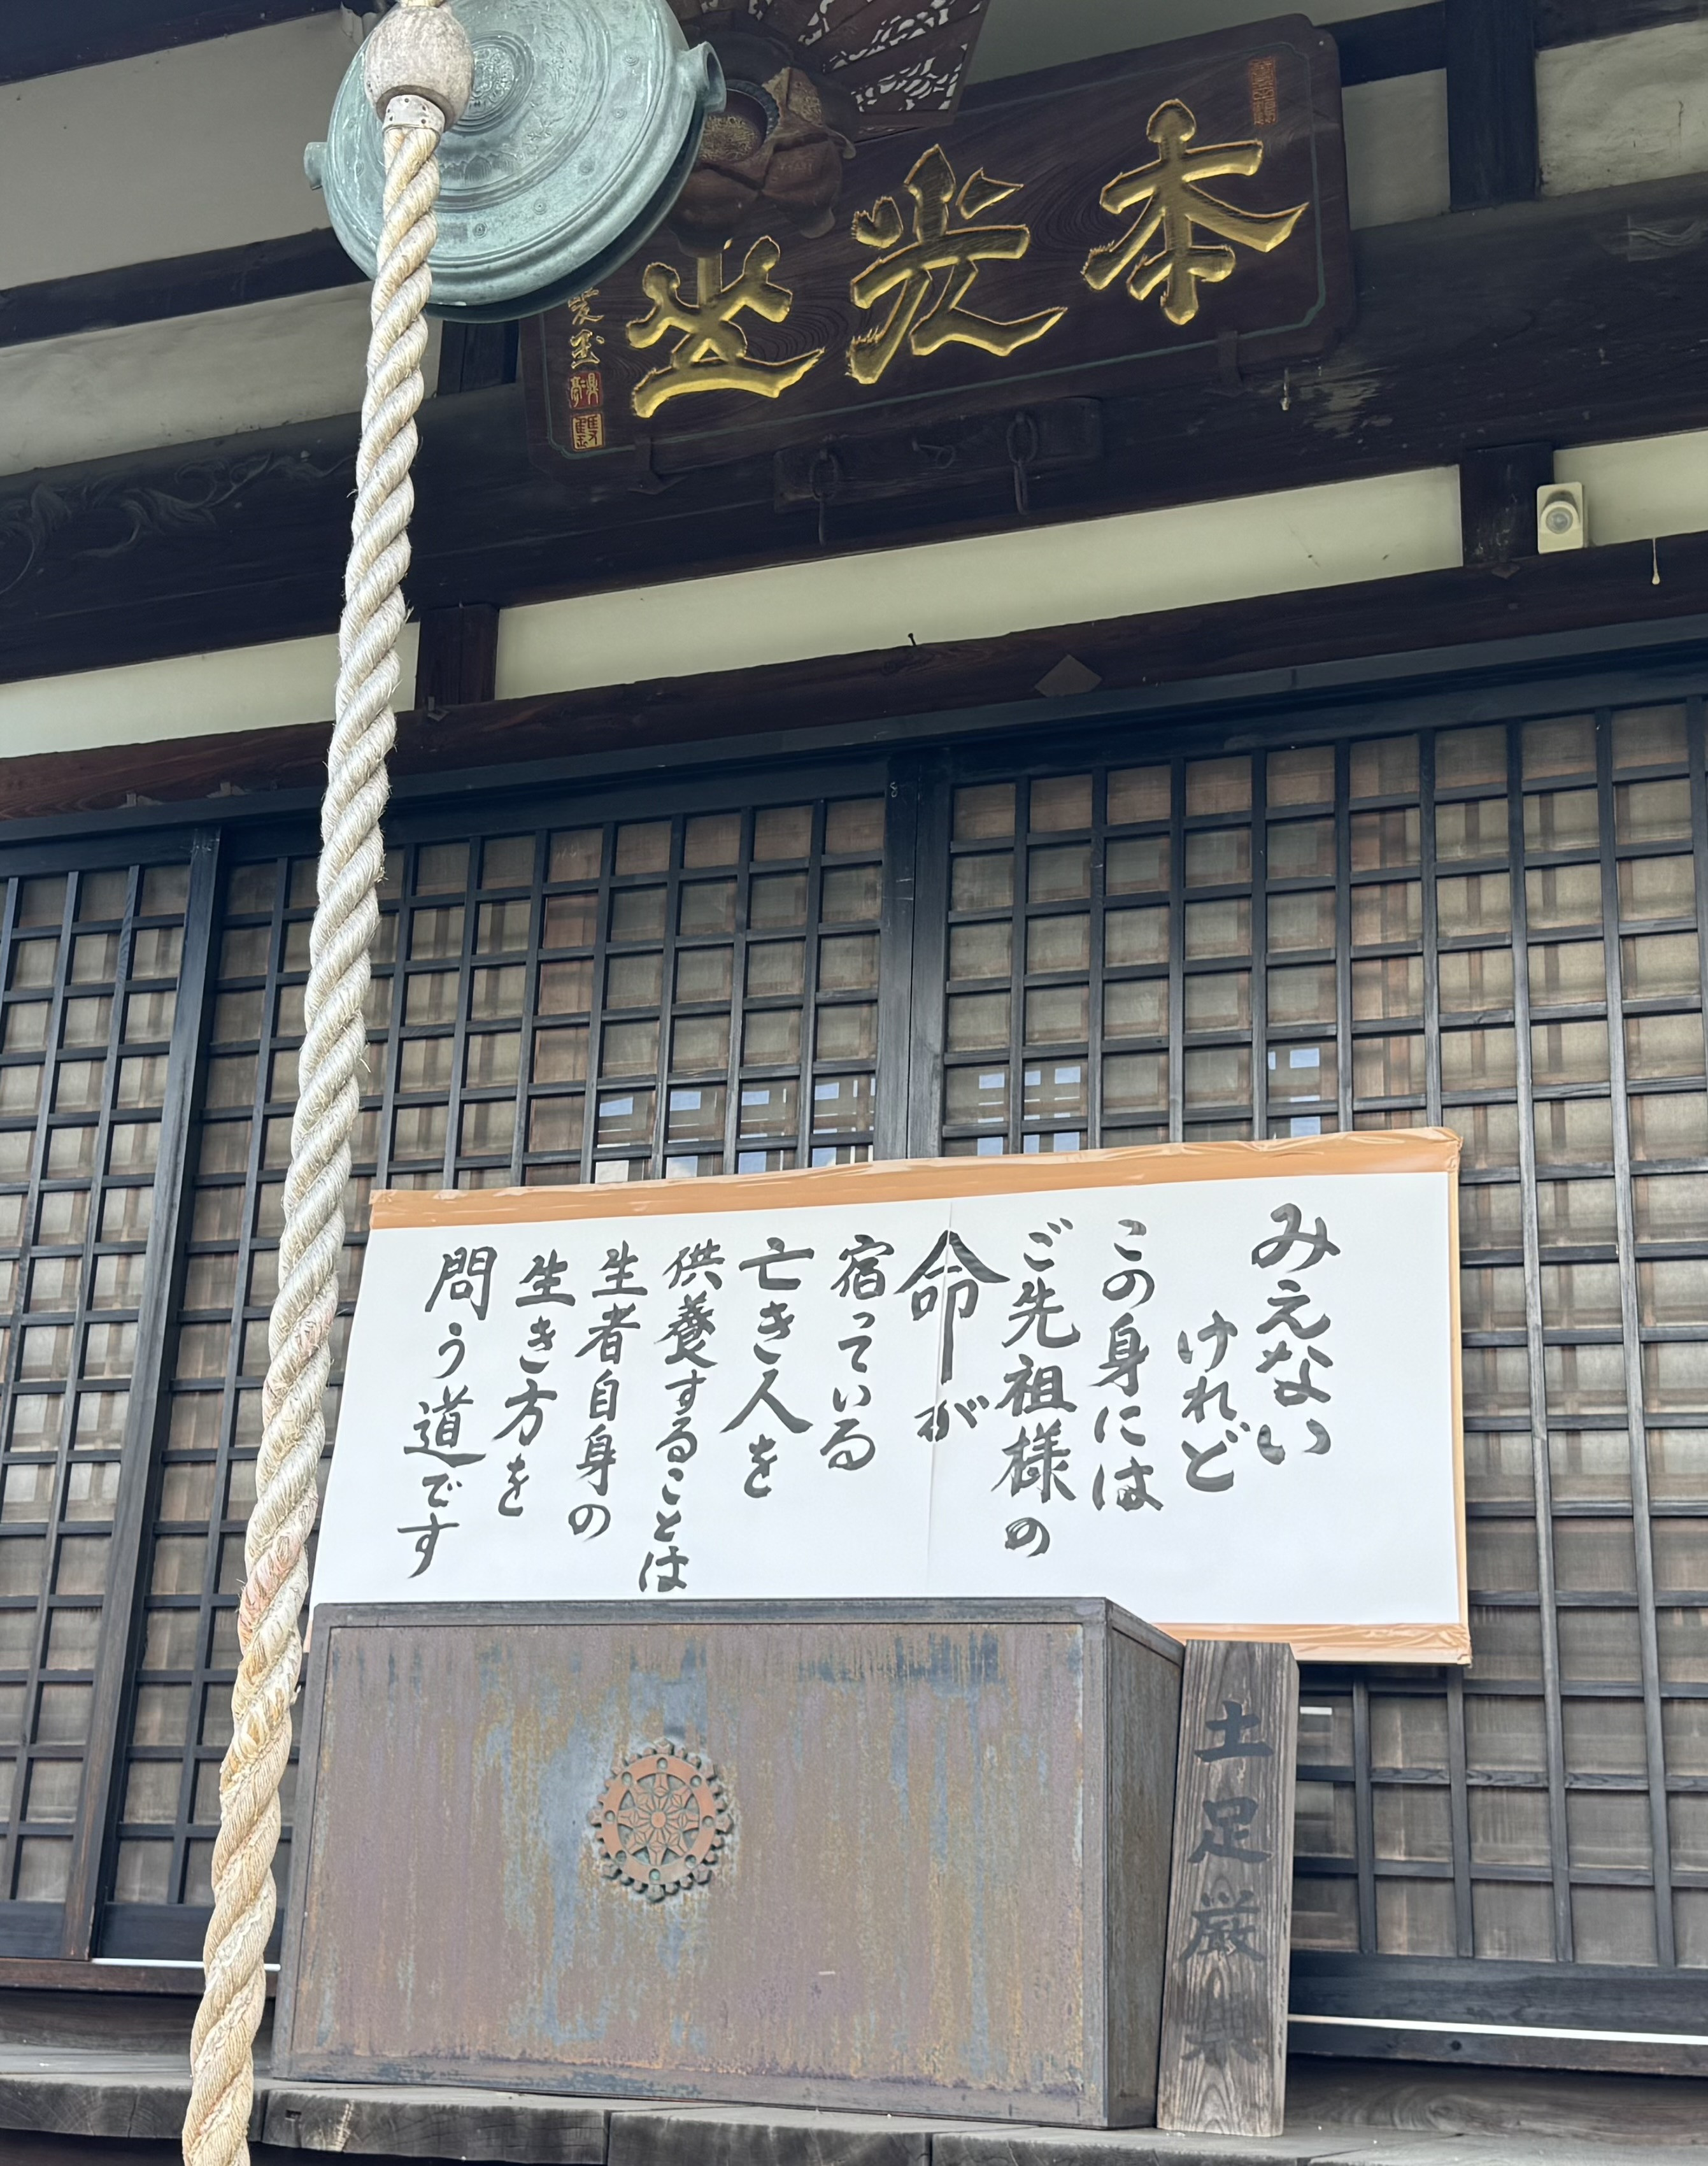 本光坐
みえない
けれど
この身には
ご先祖様の
命が
宿っている
亡き人を
供養することは
生者自身の
生き方を
問う道です
土足厳禁